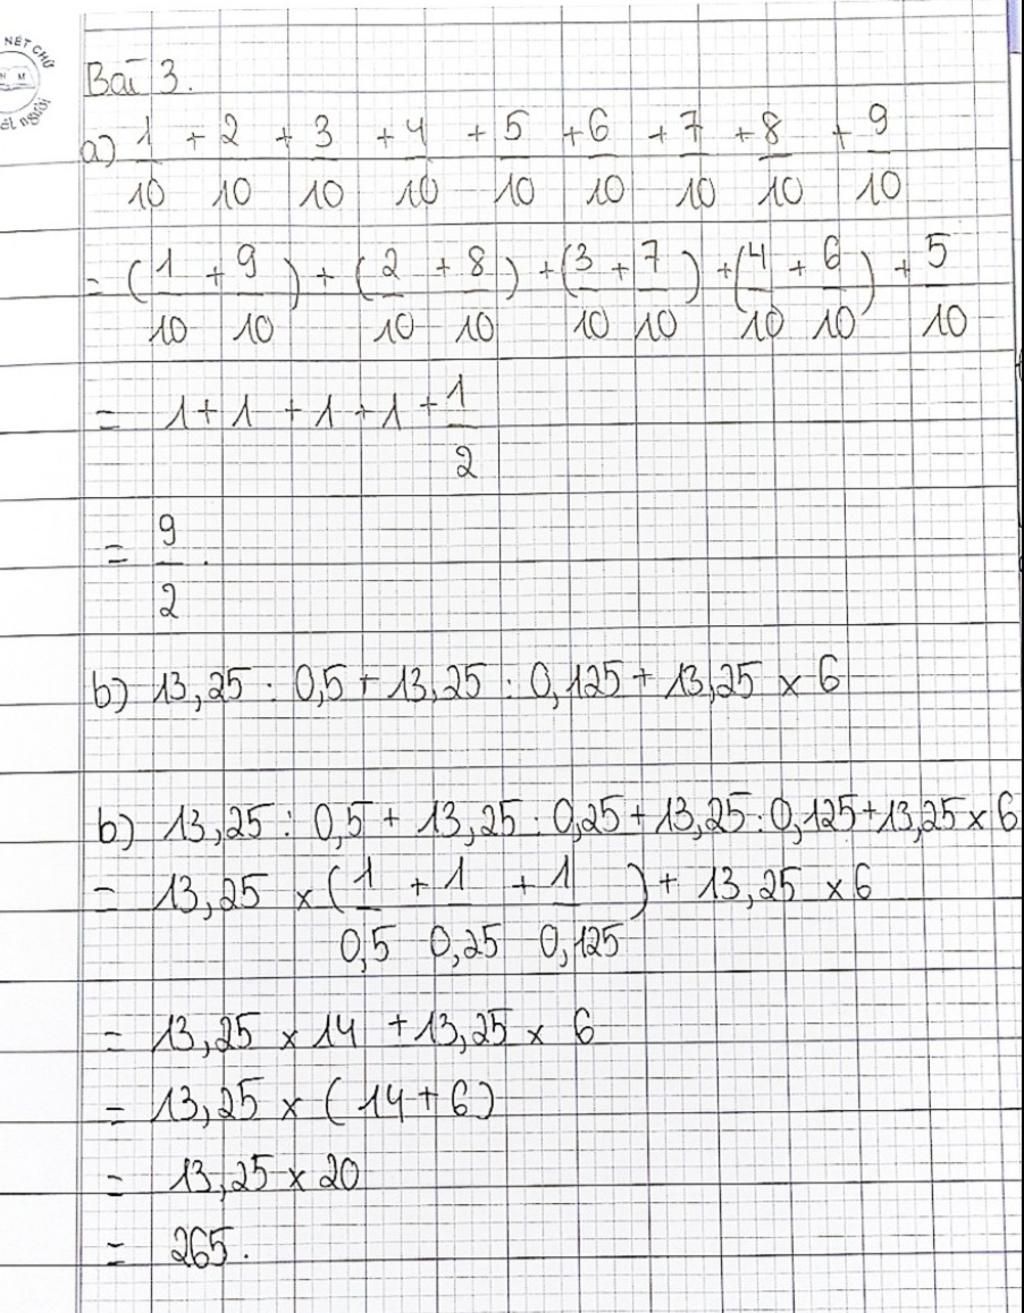 NÉT CHỮ
H M
nết người
Bài 3.
a) 1/10 + 2/10 + 3/10 + 4/10 + 5/10 + 6/10 + 7/10 + 8/10 + 9/10
= (1/10 + 9/10) + (2/10 + 8/10) + (3/10 + 7/10) + (4/10 + 6/10) + 5/10
= 1 + 1 + 1 + 1 + 1/2
= 9/2.
b) 13,25 : 0,5 + 13,25 : 0,125 + 13,25 x 6
b) 13,25 : 0,5 + 13,25 : 0,25 + 13,25 : 0,125 + 13,25 x 6
= 13,25 x (1/0,5 + 1/0,25 + 1/0,125) + 13,25 x 6
= 13,25 x 14 + 13,25 x 6
= 13,25 x (14 + 6)
= 13,25 x 20
= 265.